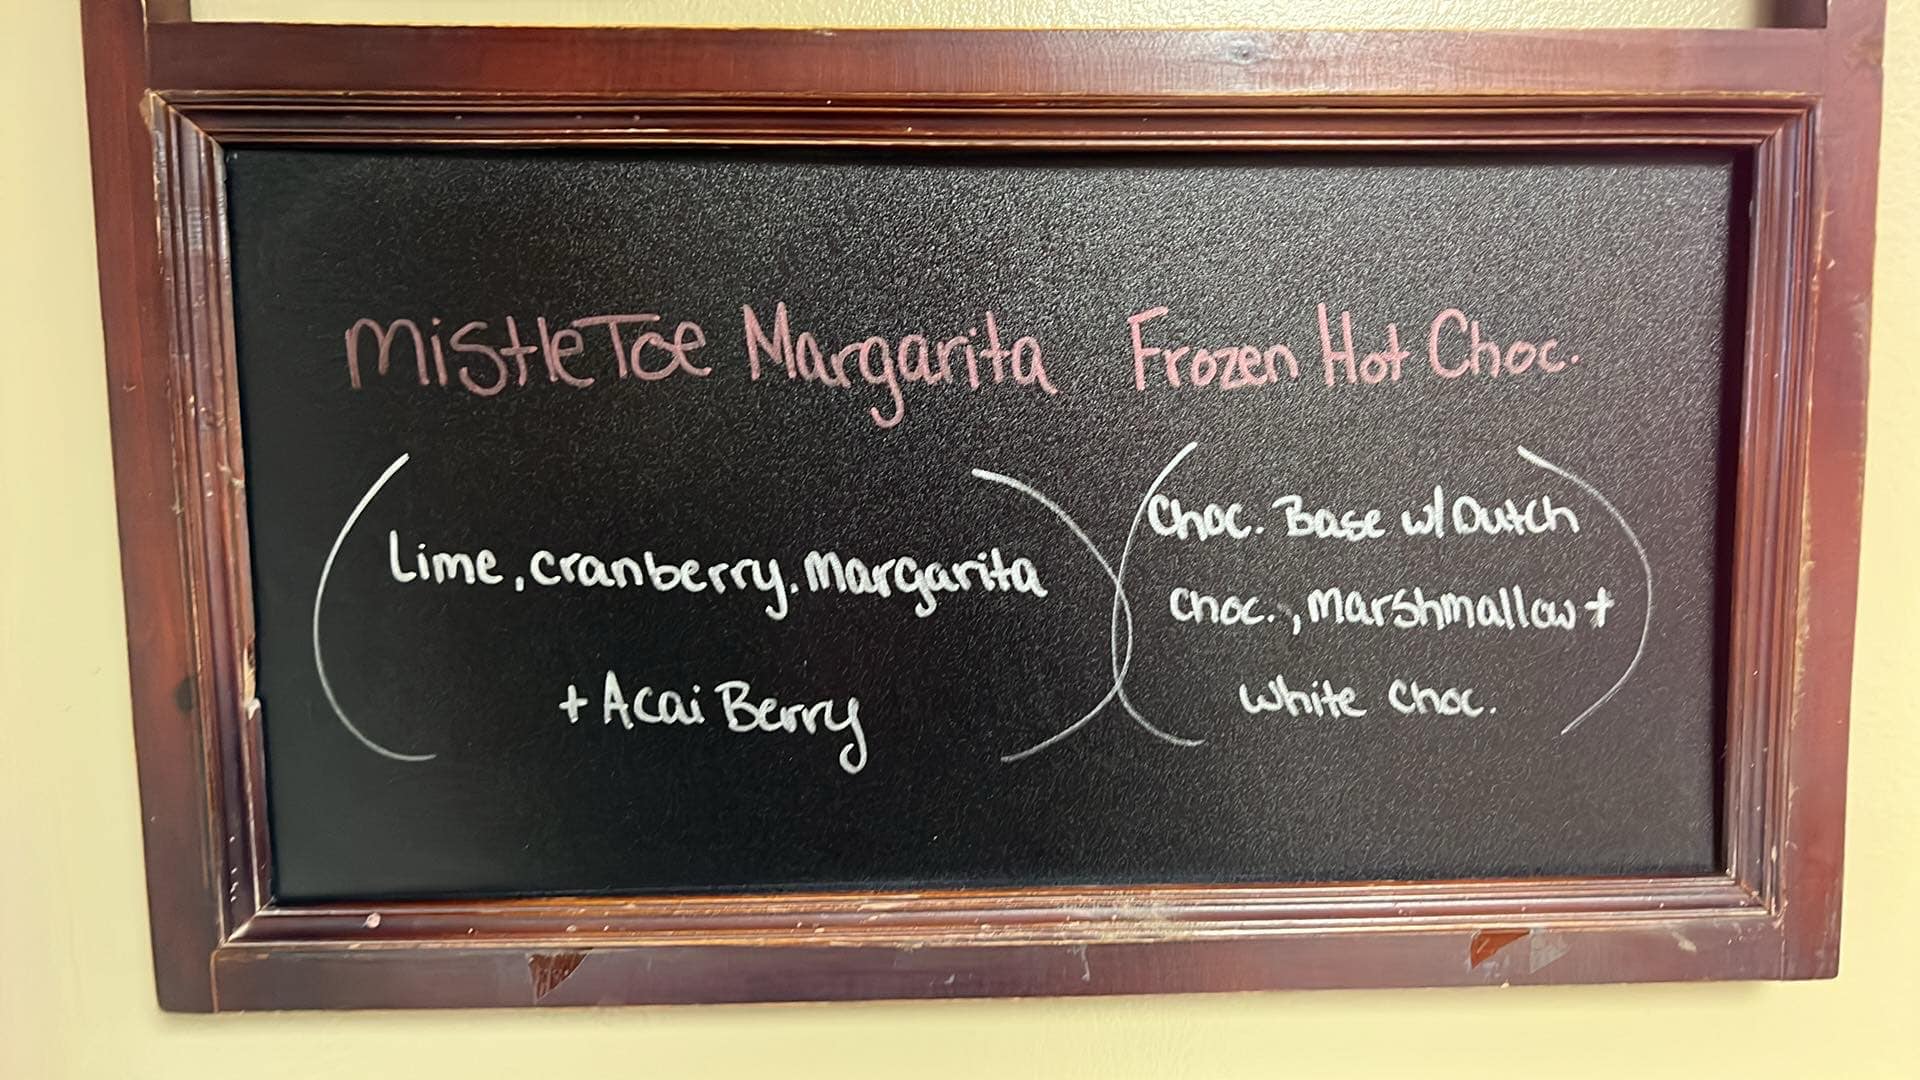 MistleToe Margarita
Lime, cranberry, Margarita
+ Acai Berry
Frozen Hot Choc.
Choc. Base w/ Dutch
Choc., Marshmallow +
White Choc.